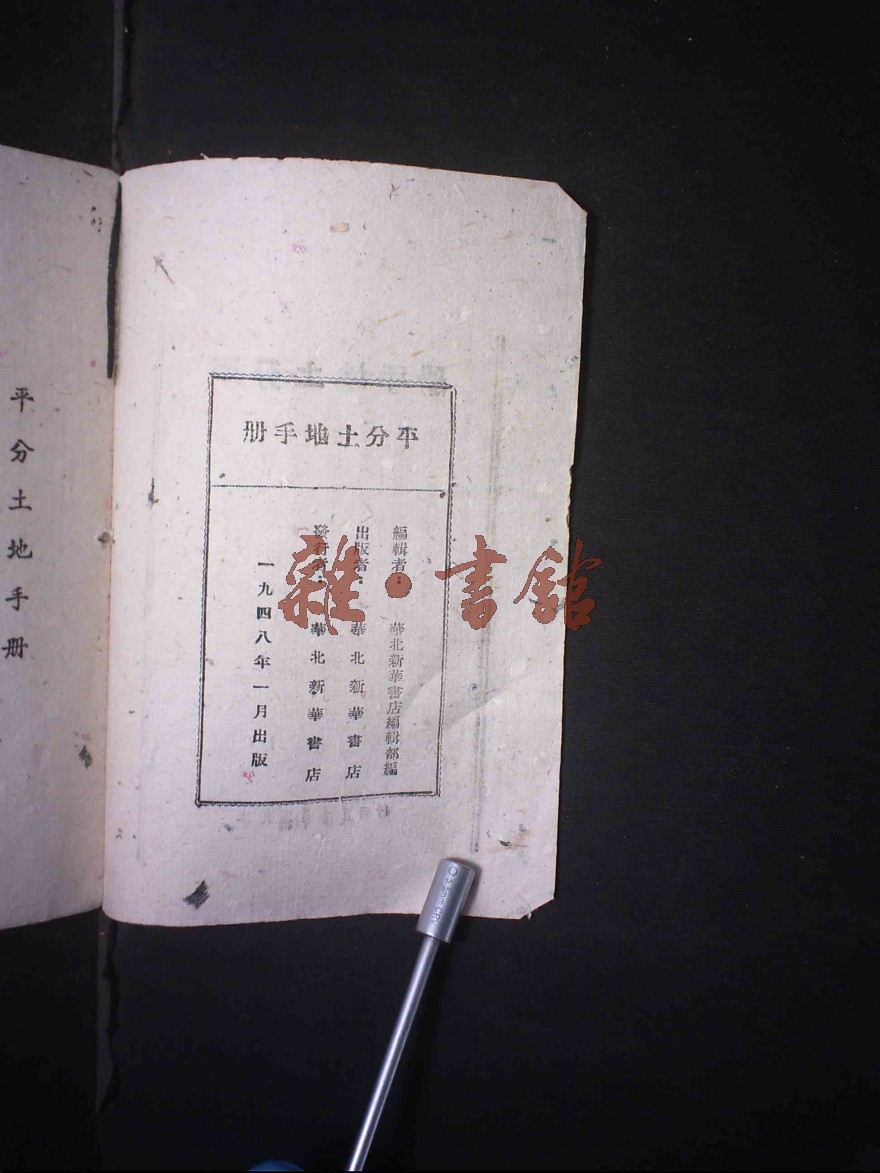 平分土地手册
平分土地手册
編輯者：華北新華書店編輯部編
出版者：華北新華書店
發行者：華北新華書店
一九四八年一月出版
雜·書館